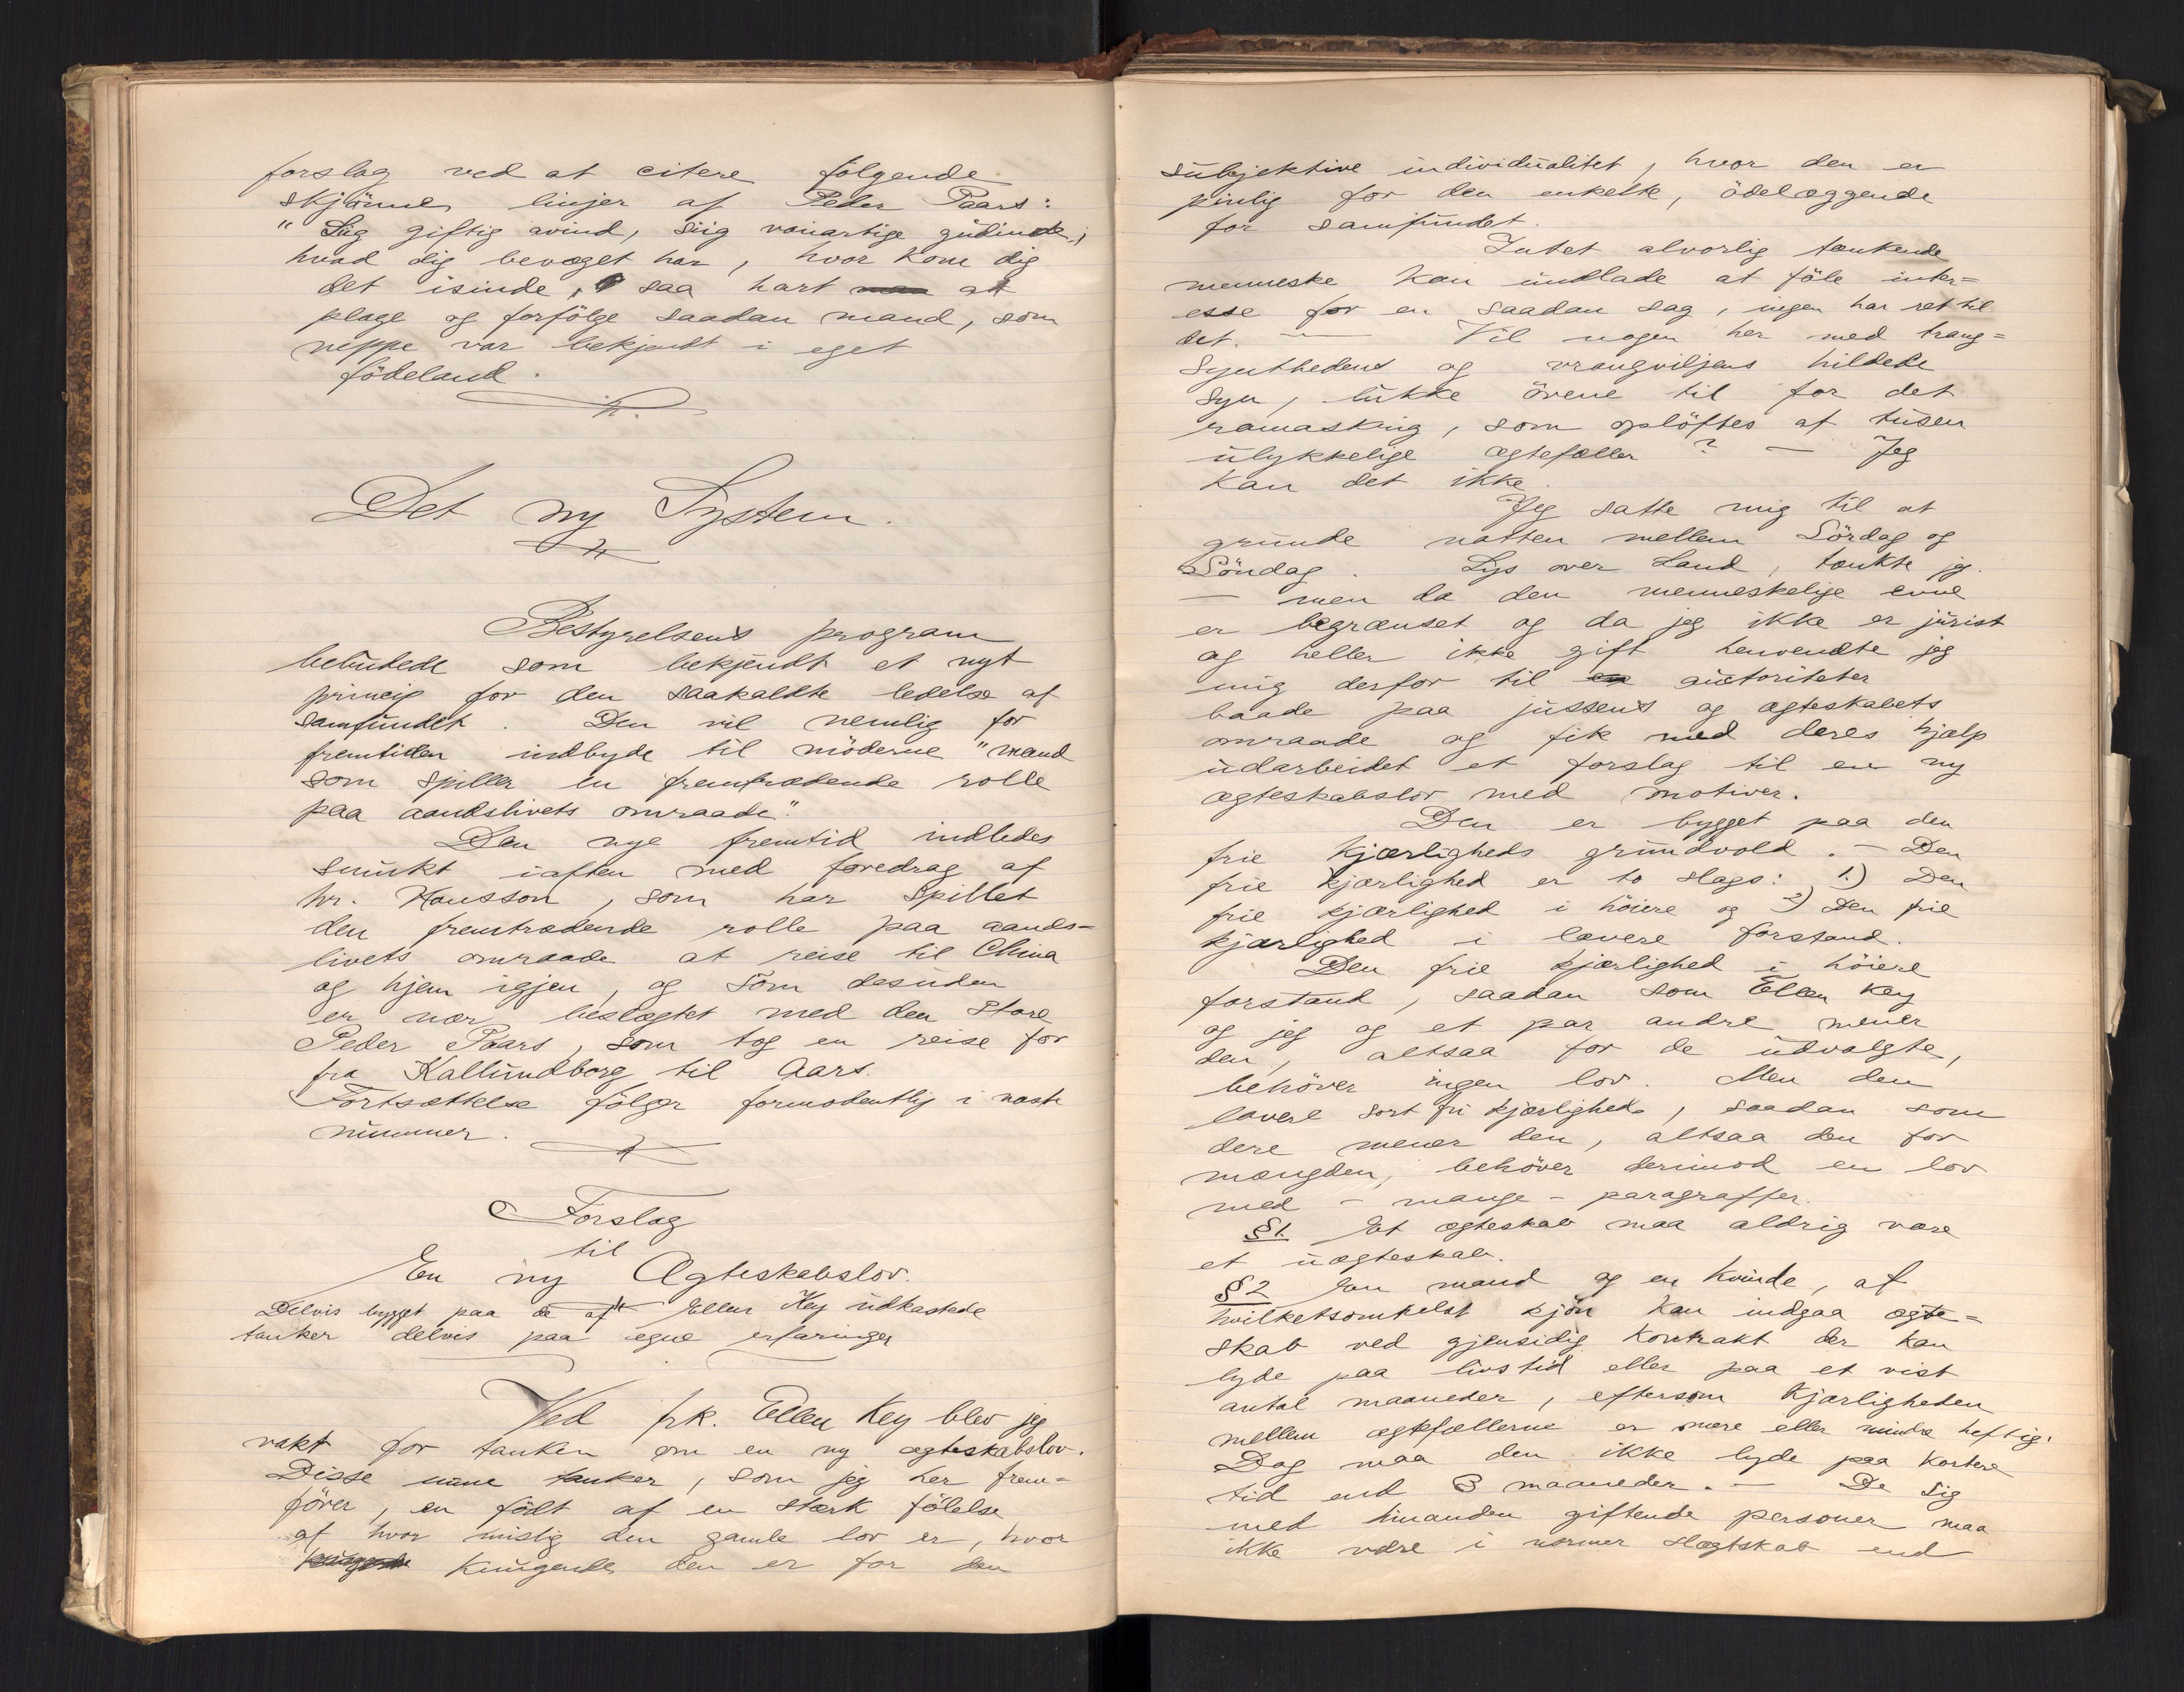 forslag ved at citere følgende
skjønne linjer af Peder Paars:
"Siig giftig avind, siig vanartige gudinde,
hvad dig bevæget har, hvor kom dig
det isinde, saa hart at
plage og forfølge saadan mand, som
neppe var bekjendt i eget
fødeland.
Det ny System.
Bestyrelsens program
bebudede som bekjendt et nyt
princip for den saakaldte ledelse af
samfundet. Den vil nemlig for
fremtiden indbyde til møderne "mænd
som spiller en fremtrædende rolle
paa aandslivets omraade".
Den nye fremtid indledes
smukt iaften med foredrag af
hr. Hansson, som har spillet
den fremtrædende rolle paa aands-
livets omraade at reise til China
og hjem igjen, og som desuden
er nær beslægtet med den store
Peder Paars, som tog en reise for
fra Kallundborg til Aars.
Fortsættelse følger formodentlig i næste
nummer.
Forslag
til
En ny Ægteskabslov.
Delvis bygget paa de af Ellen Key udkastede
tanker delvis paa egne erfaringer
Ved frk. Ellen Key blev jeg
vakt for tanken om en ny ægteskabslov.
Disse mine tanker, som jeg her frem-
fører, er født af en stærk følelse
af hvor mislig den gamle lov er, hvor
kuugende kuugende den er for den
subjektive individualitet, hvor den er
pinlig for den enkelte, ødelæggende
for samfundet.
Intet alvorlig tænkende
menneske kan undlade at føle inter=
esse for en saadan sag, ingen har ret til
det. — Vil nogen her med trang=
synthedens og vrangviljens hildede
syn, lukke ørene til for det
ramaskrig, som opløftes af tusen
ulykkelige ægtefæller? — Jeg
kan det ikke.
Jeg satte mig til at
grunde natten mellem Lørdag og
Søndag. Lys over Land, tænkte jeg.
— men da den menneskelige evne
er begrænset og da jeg ikke er jurist
og heller ikke gift henvendte jeg
mig derfor til autoriteter
baade paa jussens og ægteskabets
omraade og fik med deres hjælp
udarbeidet et forslag til en ny
ægteskabslov med motiver.
Den er bygget paa den
frie kjærligheds grundvold. — Den
frie kjærlighed er to slags: 1.) Den
frie kjærlighed i høiere og 2) Den frie
kjærlighed i lavere forstand.
Den frie kjærlighed i høiere
forstand, saadan som Ellen Key
og jeg og et par andre mener
den, altsaa for de udvalgte,
behøver ingen lov. Men den
lavere sort fri kjærlighed, saadan som
dere mener den, altsaa den for
mængden, behøver derimod en lov
med - mange - paragraffer.
§1. Et ægteskab maa aldrig være
et uægteskab.
§2 En mand og en kvinde, af
hvilketsomhelst kjøn kan indgaa ægte=
skab ved gjensidig kontrakt der kan
lyde paa livstid eller paa et vist
antal maaneder, eftersom kjærligheden
mellem ægtefællerne er mere eller mindre heftig.
Dog maa den ikke lyde paa kortere
tid end 3 maaneder. — De sig
med hinanden giftende personer maa
ikke være i nærmere slægtskab end